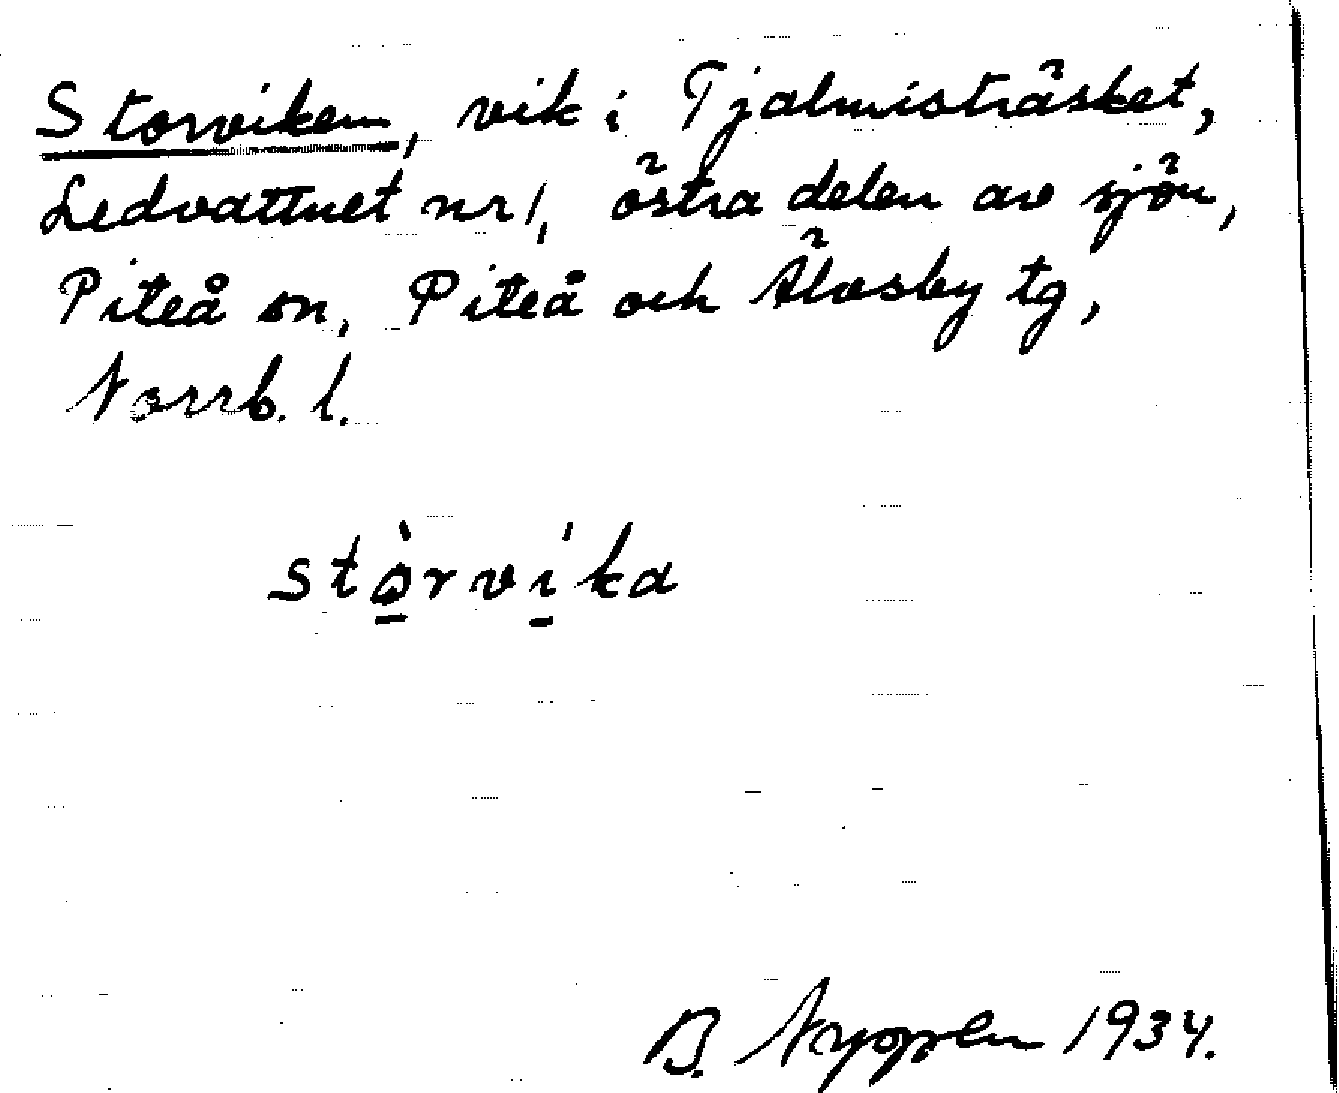 Storviken, vik i Tjalmisträsket,
Ledvattnet nr 1, östra delen av sjön,
Piteå sn, Piteå och Älvsby tg,
Norrb. l.
stòrvíka
B. Nyppen 1934.